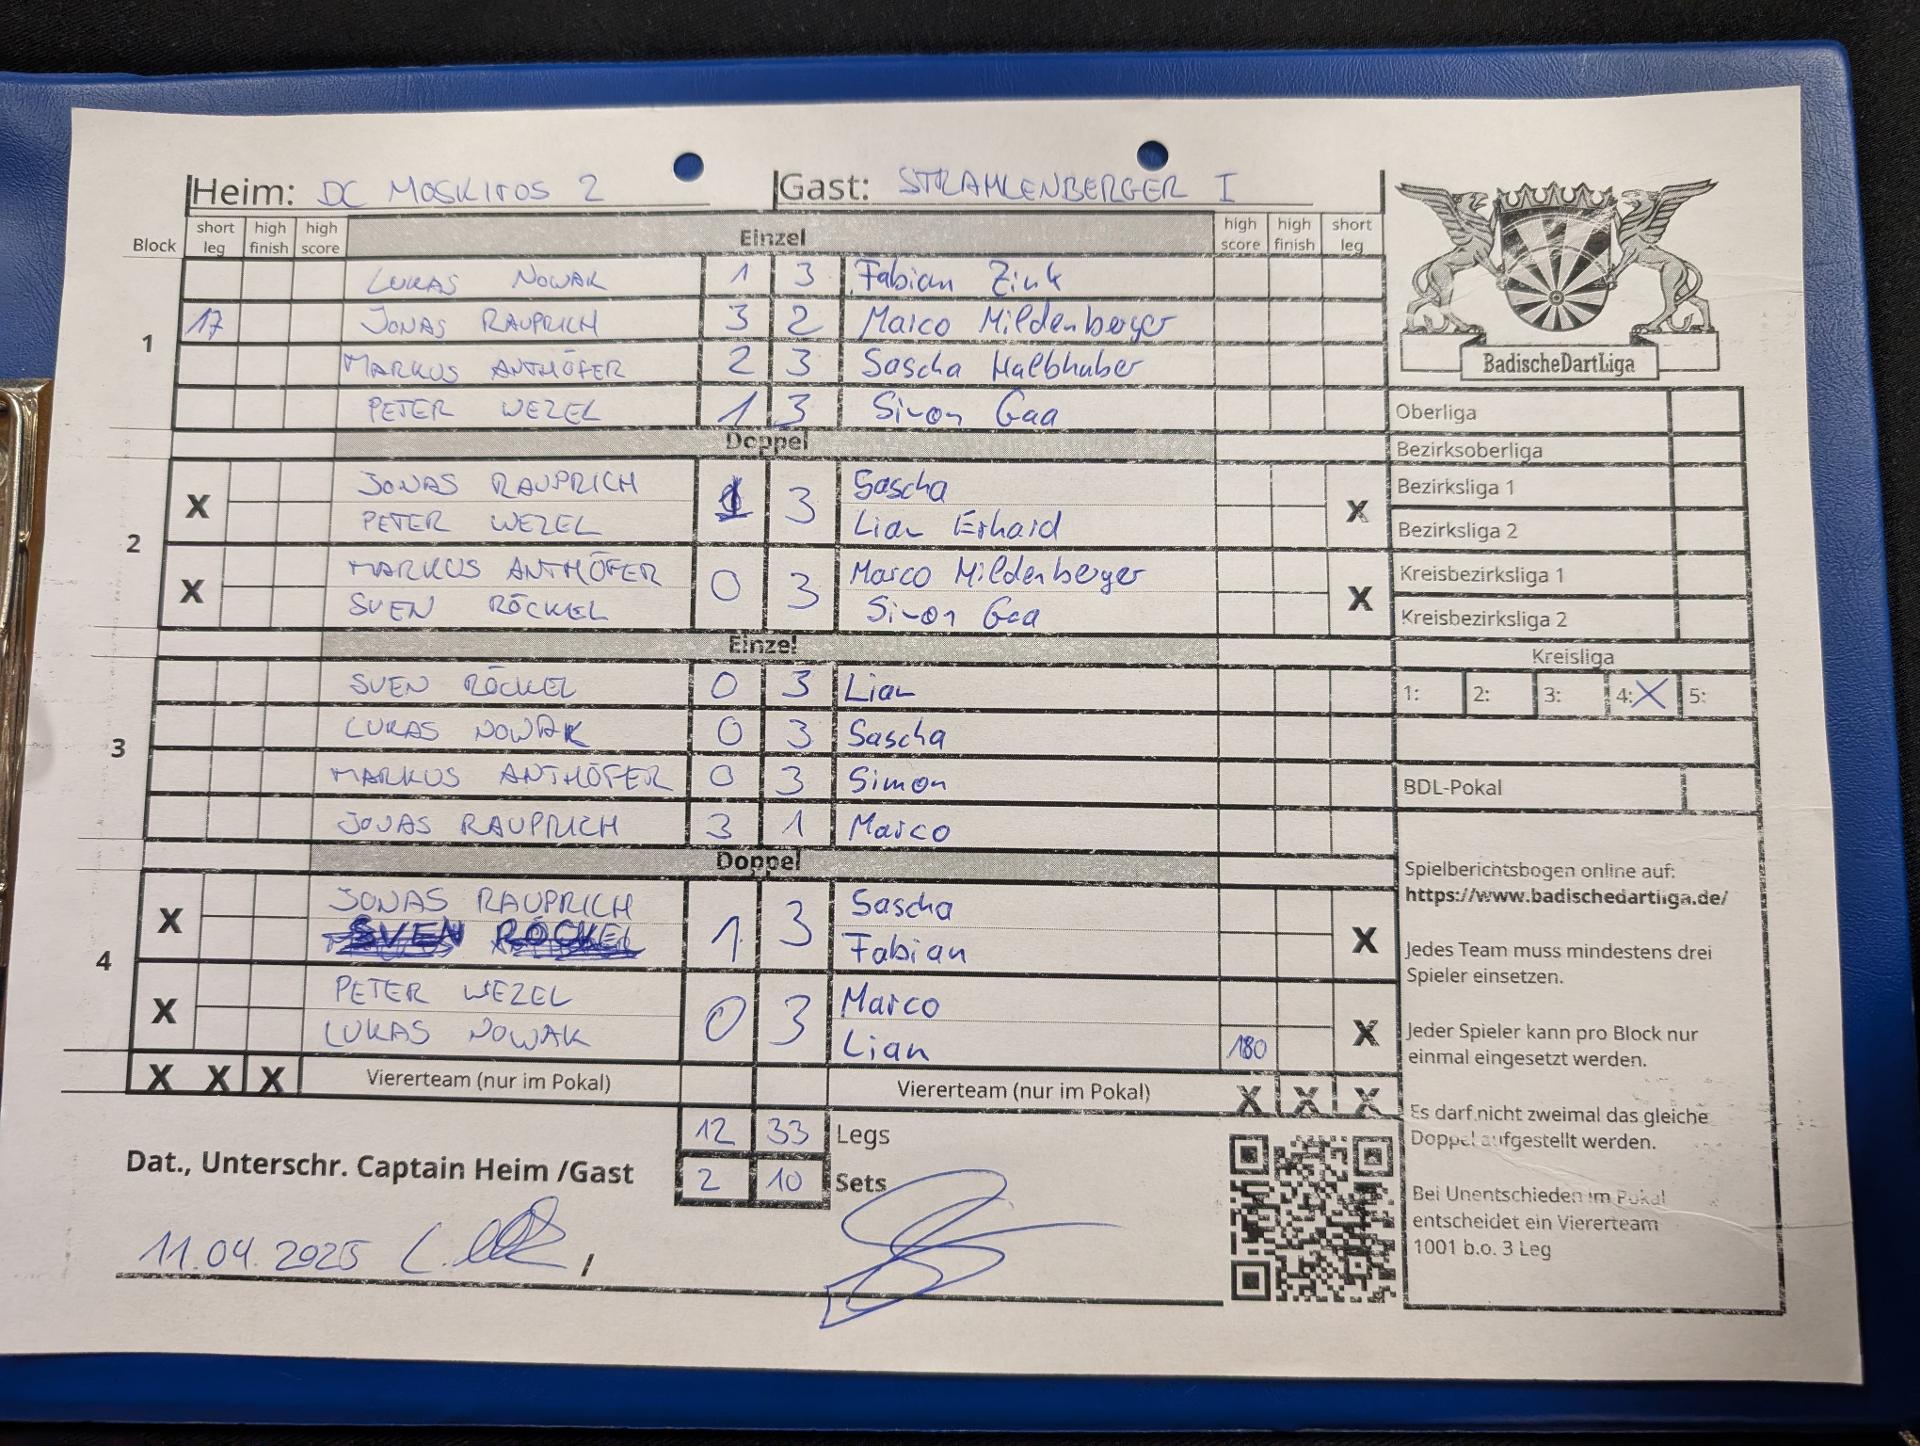 Heim: DC MOSKITOS 2 Gast: STRAHLENBERGER I
Block short leg high finish high score Einzel high score high finish short leg
1
LUKAS NOWAK 1 3 Fabian Zink
17 JONAS RAUPRICH 3 2 Marco Mildenberger
MARKUS ANTHÖFER 2 3 Sascha Halbhuber
PETER WEZEL 1 3 Simon Gaa
Doppel
2
X JONAS RAUPRICH 1 3 Sascha X
PETER WEZEL Lian Erhard
X MARKUS ANTHÖFER 0 3 Marco Mildenberger X
SVEN RÖCKEL Simon Gaa
Einzel
3
SVEN RÖCKEL 0 3 Lian
LUKAS NOWAK 0 3 Sascha
MARKUS ANTHÖFER 0 3 Simon
JONAS RAUPRICH 3 1 Marco
Doppel
4
X JONAS RAUPRICH 1 3 Sascha X
SVEN RÖCKEL Fabian
X PETER WEZEL 0 3 Marco X
LUKAS NOWAK Lian 180
X X X Viererteam (nur im Pokal) Viererteam (nur im Pokal) X X X
12 33 Legs
2 10 Sets
Dat., Unterschr. Captain Heim /Gast
11.04.2025 /
BadischeDartLiga
Oberliga
Bezirksoberliga
Bezirksliga 1
Bezirksliga 2
Kreisbezirksliga 1
Kreisbezirksliga 2
Kreisliga
1: 2: 3: 4: X 5:
BDL-Pokal
Spielberichtsbogen online auf:
https://www.badischedartliga.de/
Jedes Team muss mindestens drei
Spieler einsetzen.
Jeder Spieler kann pro Block nur
einmal eingesetzt werden.
Es darf nicht zweimal das gleiche
Doppel aufgestellt werden.
Bei Unentschieden im Pokal
entscheidet ein Viererteam
1001 b.o. 3 Leg